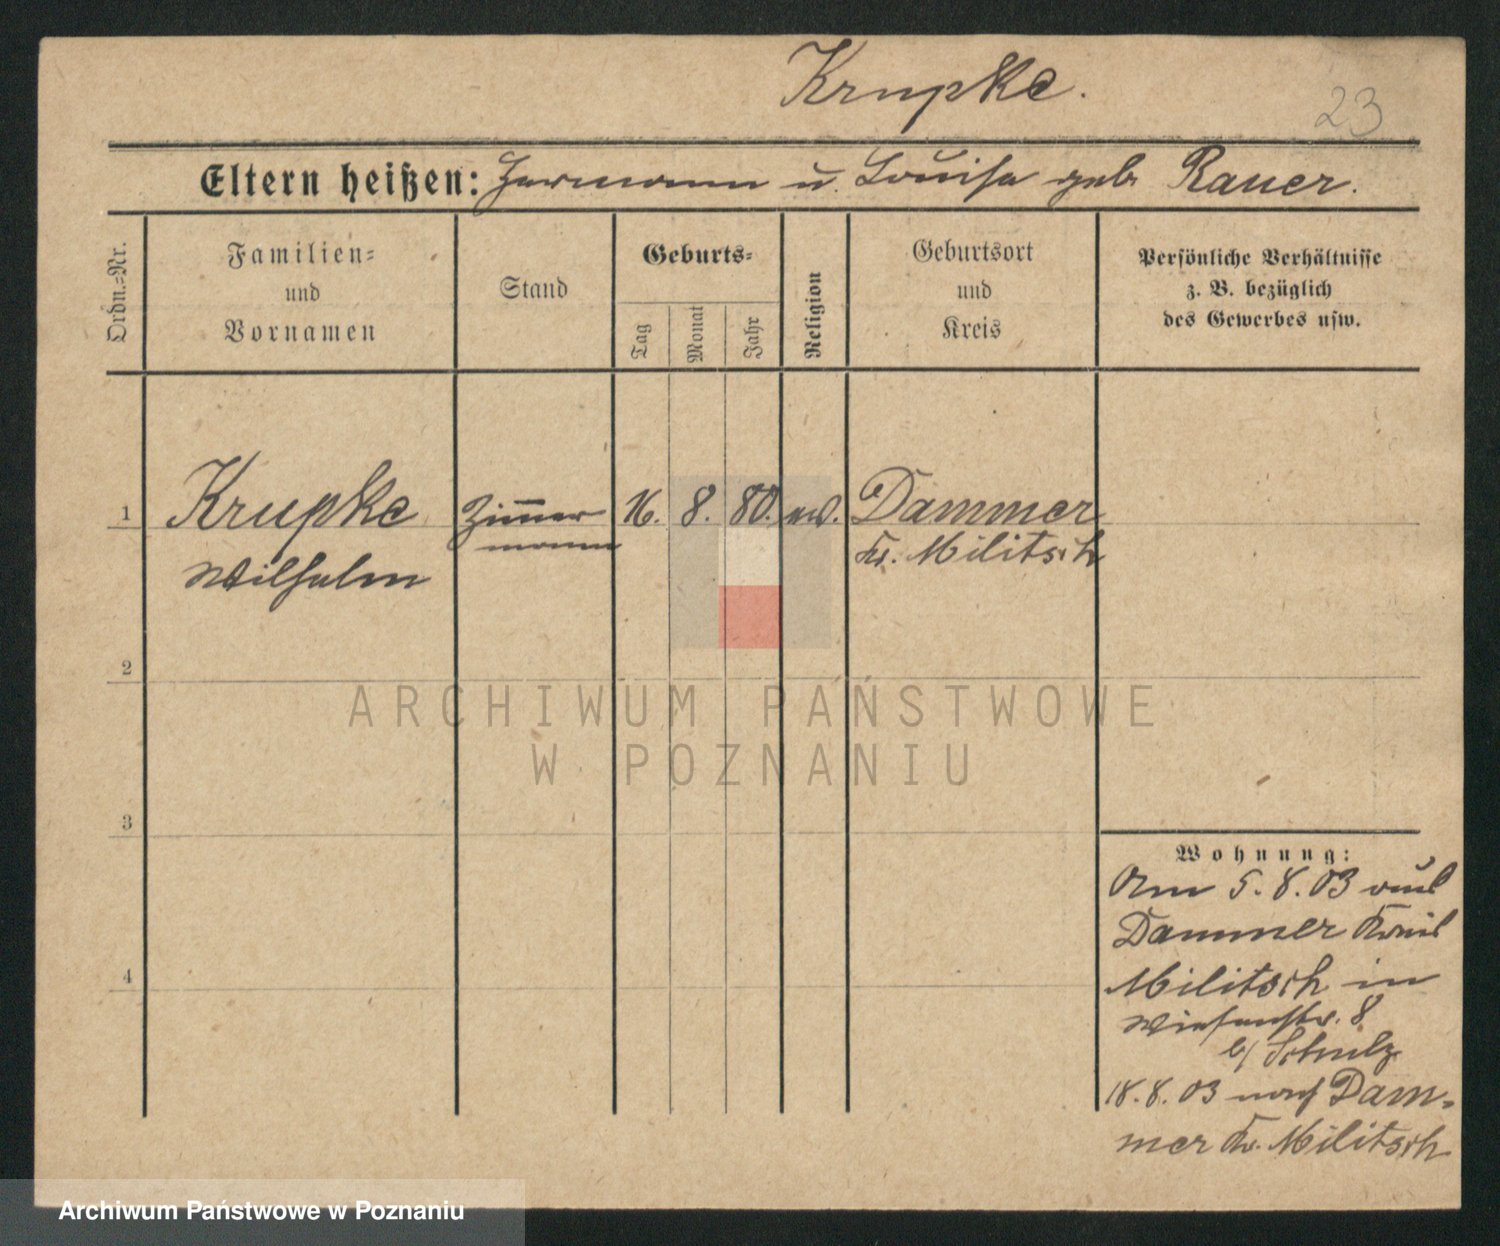 Krupke.
23
Eltern heißen: Hermann u. Louise geb Rauer.
Ordn.=Nr.
Familien=
und
Vornamen
Stand
Geburts=
Tag
Monat
Jahr
Religion
Geburtsort
und
Kreis
Persönliche Verhältnisse
z. B. bezüglich
des Gewerbes usw.
1 Krupke Zimmer 16. 8. 80. ev. Dammer
Wilhelm mann Kr. Militsch
2
ARCHIWUM PAŃSTWOWE
W POZNANIU
3
Wohnung:
Am 5.8.03 aus
Dammer Kreis
Militsch in
Wiesenstr. 8
b/ Schulz
18.8.03 nach Dam=
mer Kr. Militsch
4
Archiwum Państwowe w Poznaniu